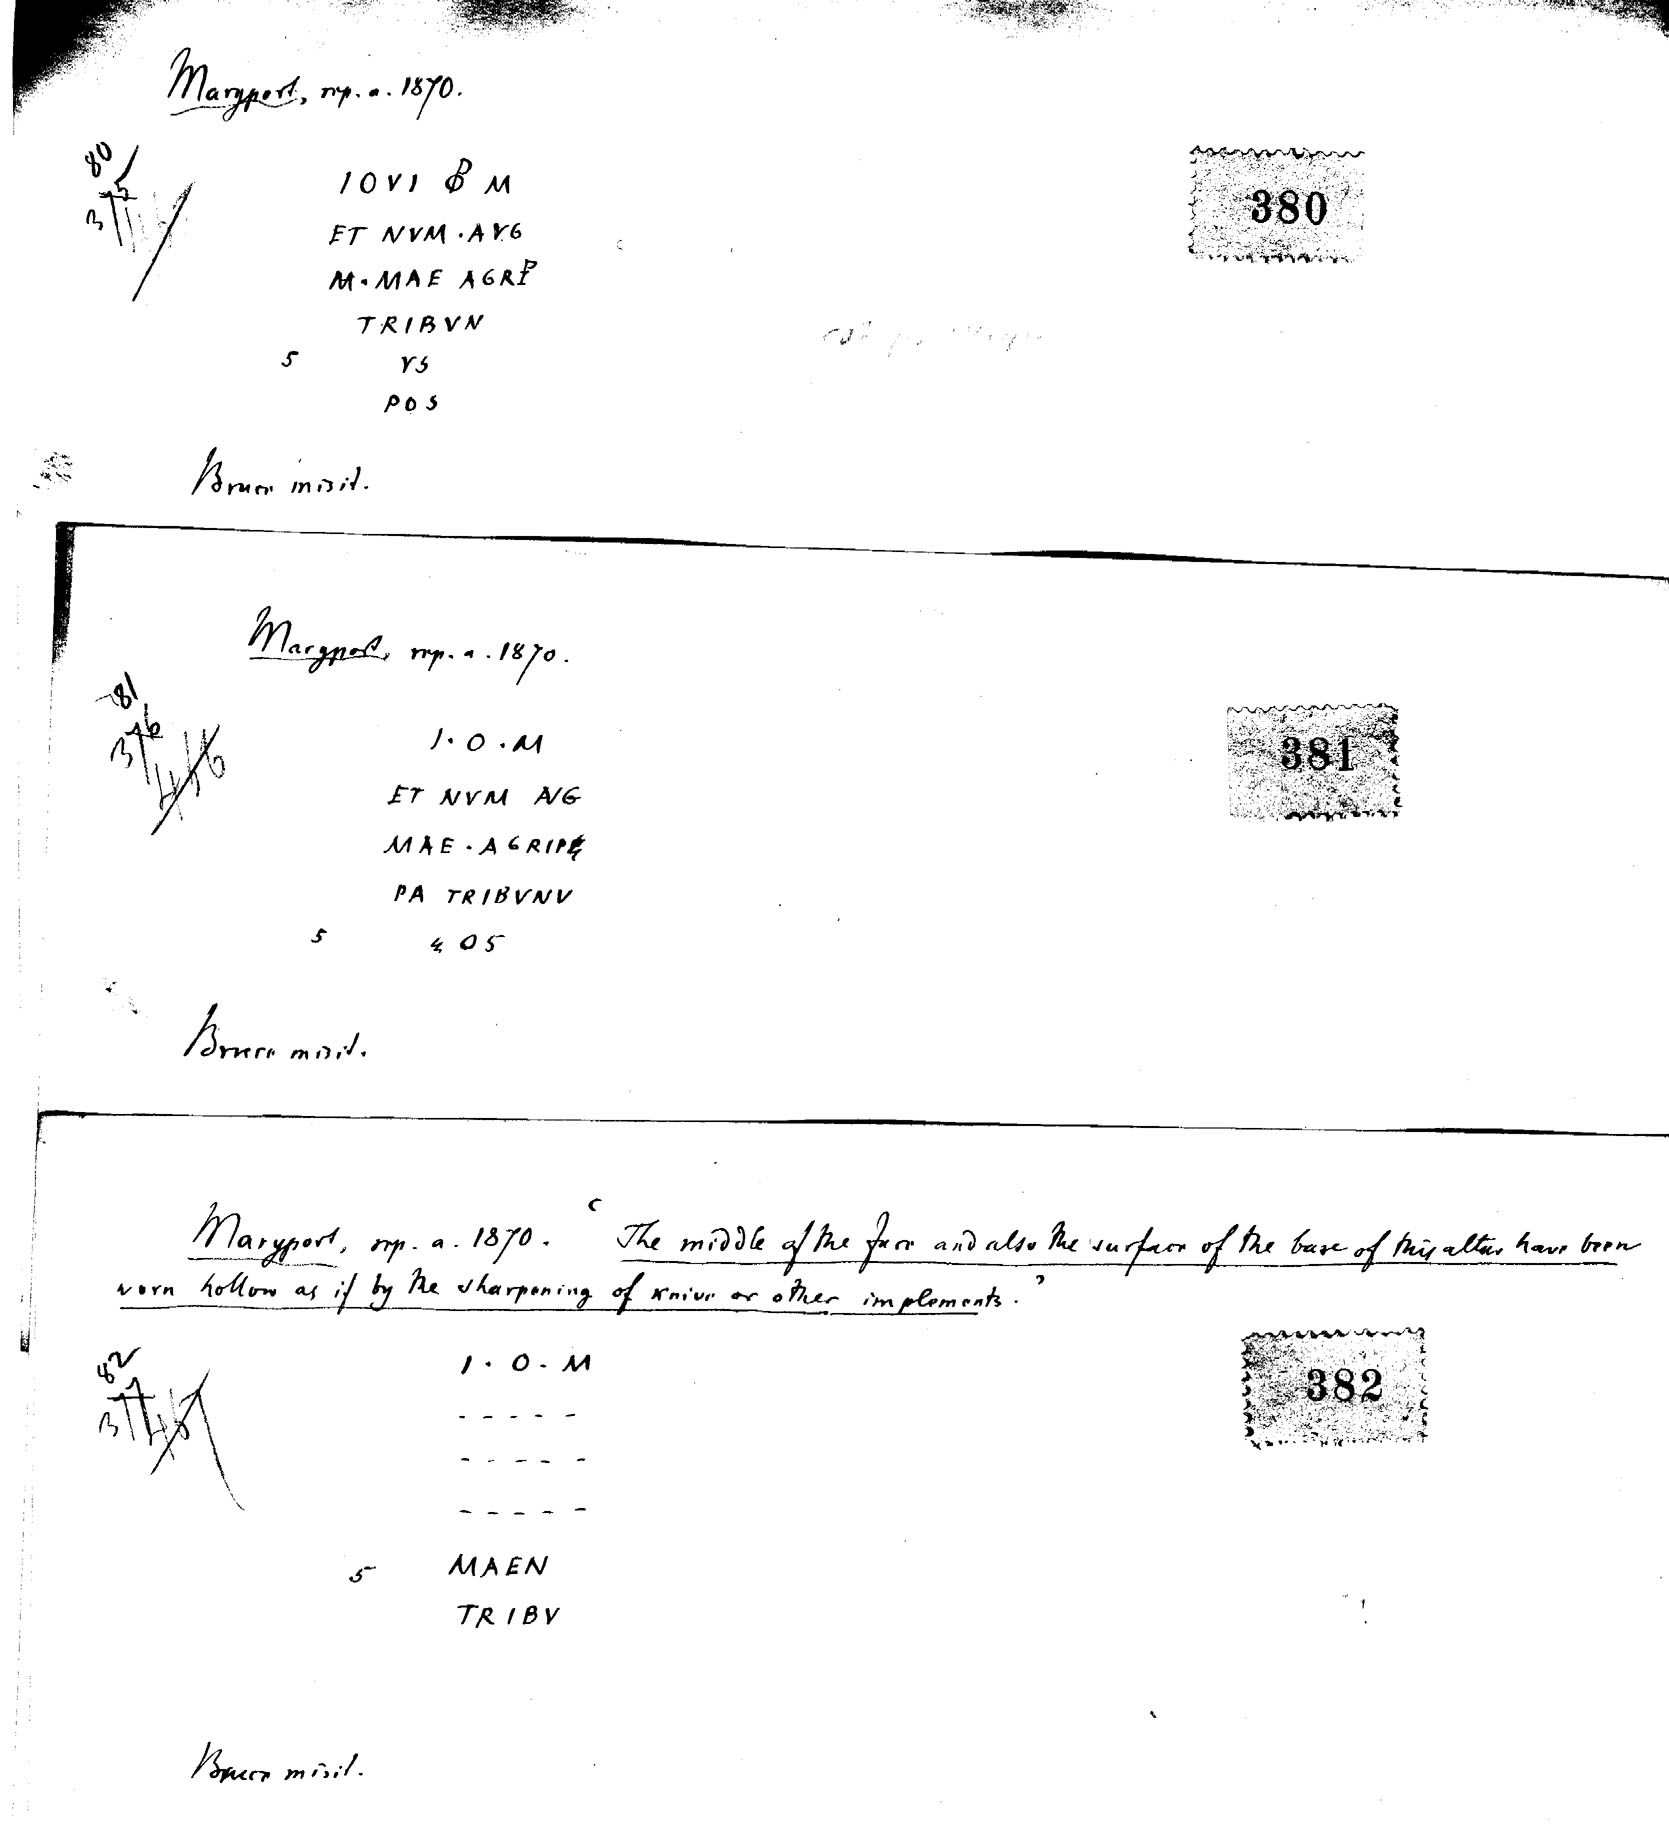 Maryport, rep. a. 1870.
80
375
380
IOVI O M
ET NVM · AVG
M · MAE AGRIP
TRIBVN
5 VS
POS
Bruce misit.
Maryport, rep. a. 1870.
381
81
376
416
I · O · M
ET NVM AVG
MAE · AGRIP
PA TRIBVNV
5 OS
Bruce misit.
Maryport, rep. a. 1870. ‘The middle of the face and also the surface of the base of this altar have been
worn hollow as if by the sharpening of knive or other implements.’
382
82
377
I · O · M
- - - - -
- - - - -
- - - - -
5 MAEN
TRIBV
Bruce misit.